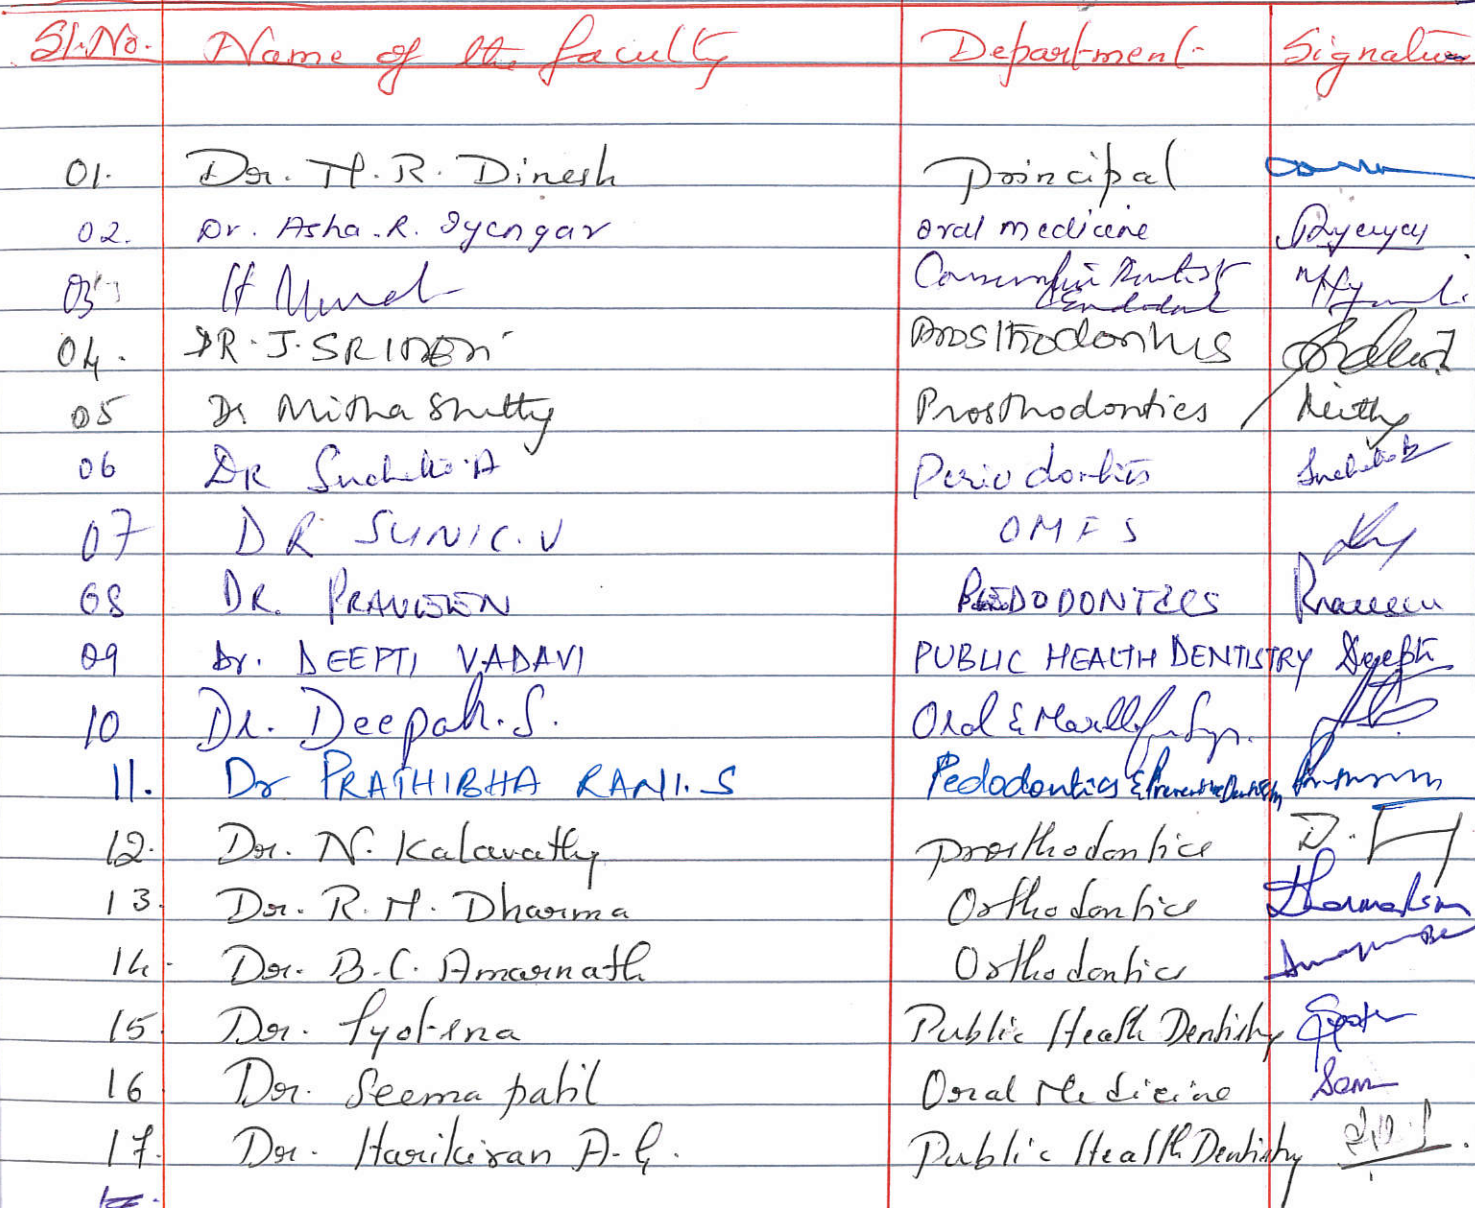 Sl.No. Name of the faculty Department Signature
01. Dr. M.R. Dinesh Principal
02. Dr. Asha.R. Iyengar oral medicine
03 H Murali
04. DR. J. SRIDEVI Prosthodontics
05 Dr Mitha Shetty Prosthodontics
06 DR Suchetha.A Periodontics
07 DR SUNIL.V OMFS
08 DR. PRAVEEN PEDODONTICS
09 Dr. DEEPTI VADAVI PUBLIC HEALTH DENTISTRY Deepti
10 Dr. Deepak.S. Oral &
11. Dr PRATHIBHA RANI.S Pedodontics & Preventive Dentistry
12. Dr. N. Kalavathy prosthodontics
13. Dr. R.M. Dharma Orthodontics
14. Dr. B.C. Amarnath Orthodontics
15 Dr. Jyotsna Public Health Dentistry
16 Dr. Seema patil Oral Medicine
17. Dr. Harikiran A.G. Public Health Dentistry